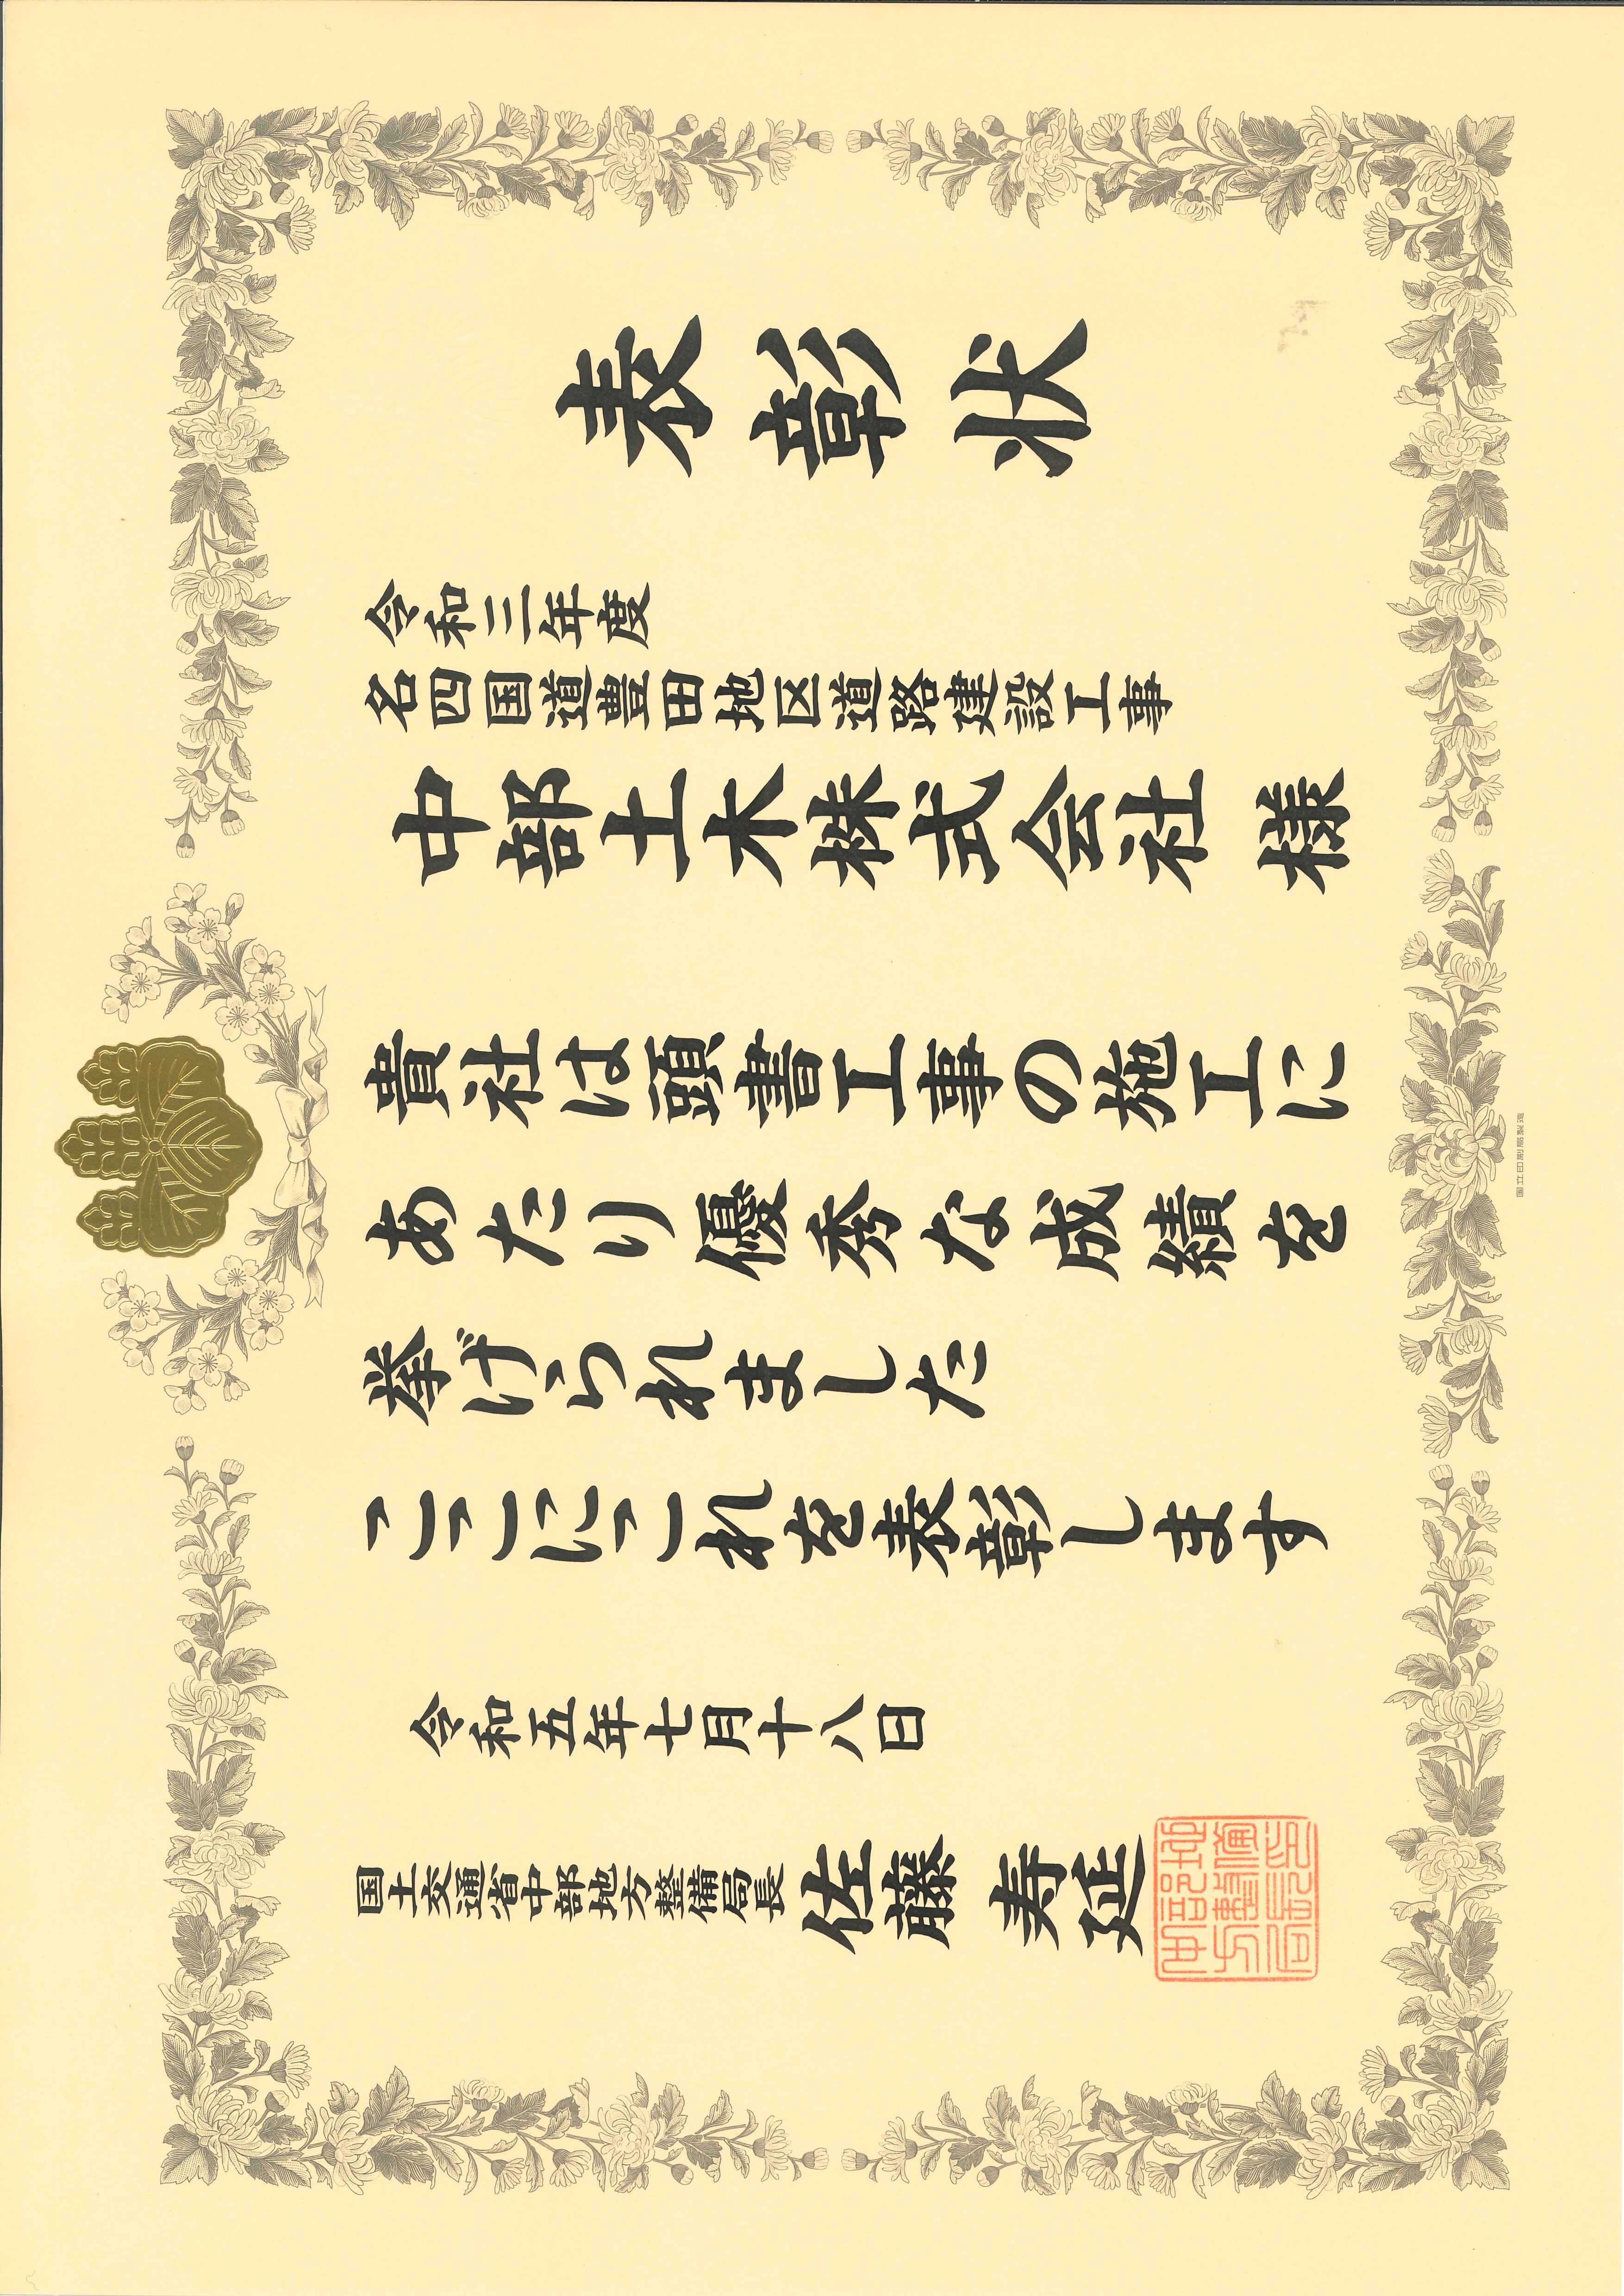 表彰状
令和三年度
名四国道豊田地区道路建設工事
中部土木株式会社 様
貴社は頭書工事の施工に
あたり優秀な成績を
挙げられました
ここにこれを表彰します
令和五年七月十八日
国土交通省中部地方整備局長 佐藤 寿延
国立印刷局製造